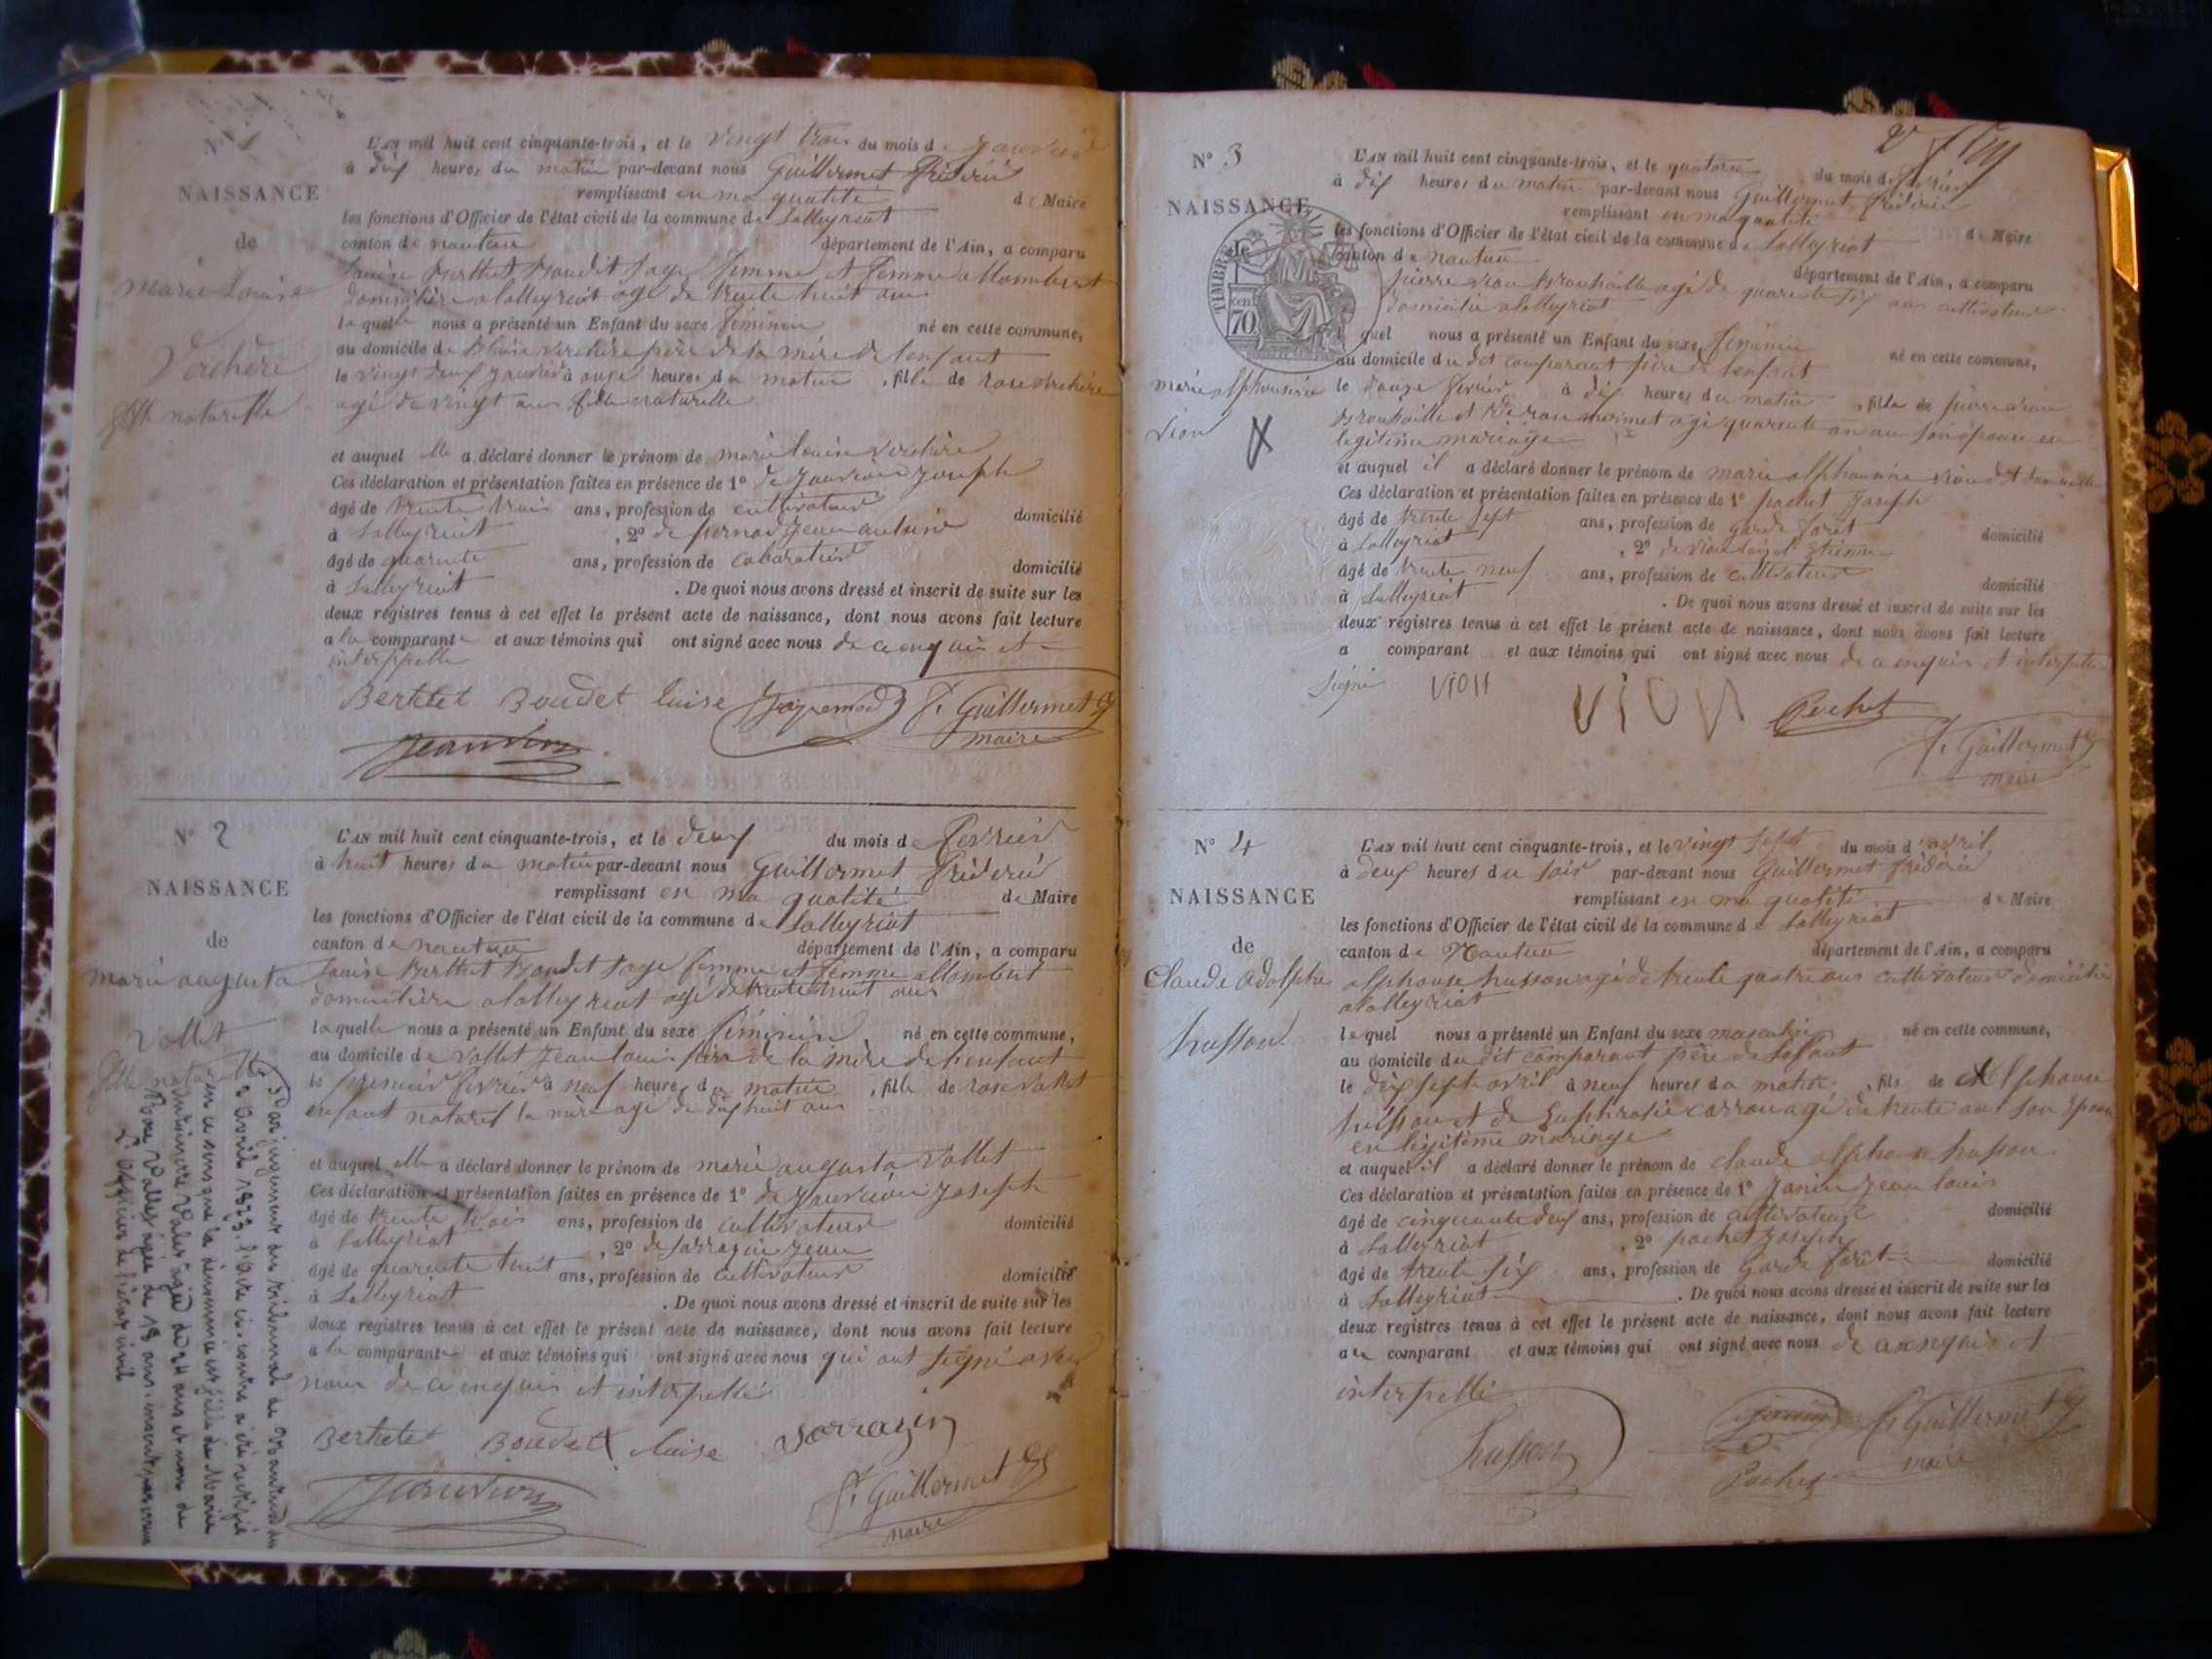 N° 1
NAISSANCE
de
marie Louise
Verchère
fille naturelle
L'AN mil huit cent cinquante-trois, et le vingt trois du mois de janvier
à dix heures du matin par-devant nous Guillermet Frédéric
remplissant en ma qualité de Maire
les fonctions d'Officier de l'état civil de la commune de Lalleyriat
canton de nantua département de l'Ain, a comparu
Louise Berthet Boudet sage femme et femme allombert
domicilière a lalleyriat agé de trente huit ans
laquelle nous a présenté un Enfant du sexe féminin né en cette commune,
au domicile de Verchère père de la mère de lenfant
le vingt deux janvier à onze heures du matin, fille de rose verchère
agé de vingt ans fille naturelle
et auquel elle a déclaré donner le prénom de marie louise verchère
Ces déclaration et présentation faites en présence de 1° de jouvrion joseph
âgé de trente trois ans, profession de cultivateur domicilié
à Lalleyriat, 2° de jean antoine
âgé de quarante ans, profession de cabaratier domicilié
à Lalleyriat. De quoi nous avons dressé et inscrit de suite sur les
deux registres tenus à cet effet le présent acte de naissance, dont nous avons fait lecture
a la comparante et aux témoins qui ont signé avec nous de ce enquis et
interppellé
Bertelet Boudet luise F. Guillermet
maire
N° 2
NAISSANCE
de
marie augusta
Vallet
fille naturelle
L'AN mil huit cent cinquante-trois, et le deux du mois de fevrier
à huit heures du matin par-devant nous Guillermet Frédéric
remplissant en ma qualité de Maire
les fonctions d'Officier de l'état civil de la commune de Lalleyriat
canton de nantua département de l'Ain, a comparu
Louise Berthet Boudet sage femme et femme allombert
domicilière a lalleyriat agé de trente huit ans
laquelle nous a présenté un Enfant du sexe féminin né en cette commune,
au domicile de Vallet jean louis père de la mère de lenfant
le premier fevrier à neuf heures du matin, fille de rose vallet
enfant naturel la mère agé de dix huit ans
et auquel elle a déclaré donner le prénom de marie augusta vallet
Ces déclaration et présentation faites en présence de 1° de jouvrion joseph
âgé de trente trois ans, profession de cultivateur domicilié
à Lalleyriat, 2° de sarrazin jean
âgé de quarante huit ans, profession de cultivateur domicilié
à Lalleyriat. De quoi nous avons dressé et inscrit de suite sur les
deux registres tenus à cet effet le présent acte de naissance, dont nous avons fait lecture
a la comparante et aux témoins qui ont signé avec nous qui ont signé avec
nous de ce enquis et interpellé
Bertelet Boudet luise sarrazin
F. Guillermet
maire
Par jugement du tribunal de Nantua du
avril 1873, l'acte ci-contre a été rectifié
en ce sens que la dénommée est fille de Marie
Valet agée de 24 ans et non de
Rose Vallet agée de 18 ans
L'officier de l'état civil
N° 3
NAISSANCE
TIMBRE
70
marie alphonsine
vion
L'AN mil huit cent cinquante-trois, et le quatorze du mois de fevrier
à dix heures du matin par-devant nous Guillermet Frédéric
remplissant en ma qualité de Maire
les fonctions d'Officier de l'état civil de la commune de Lalleyriat
canton de nantua département de l'Ain, a comparu
pierre vion agé de quarante six ans cultivateur
domicilié a lalleyriat
quel nous a présenté un Enfant du sexe féminin né en cette commune,
au domicile du dit comparant père de lenfant
le douze fevrier à dix heures du matin, fille de pierre vion
et de agé quarante un an son épouse en
legitime mariage
et auquel il a déclaré donner le prénom de marie alphonsine vion
Ces déclaration et présentation faites en présence de 1° pochet joseph
âgé de trente sept ans, profession de garde forêt domicilié
à Lalleyriat, 2° de etienne
âgé de trente neuf ans, profession de cultivateur domicilié
à Lalleyriat. De quoi nous avons dressé et inscrit de suite sur les
deux registres tenus à cet effet le présent acte de naissance, dont nous avons fait lecture
a comparant et aux témoins qui ont signé avec nous de ce enquis et interpellé
signé vion vion Pochet
F. Guillermet
maire
N° 4
NAISSANCE
de
Claude adolphe
husson
L'AN mil huit cent cinquante-trois, et le vingt sept du mois d'avril
à deux heures du soir par-devant nous Guillermet frédéric
remplissant en ma qualité de Maire
les fonctions d'Officier de l'état civil de la commune de Lalleyriat
canton de Nantua département de l'Ain, a comparu
alphonse husson agé de trente quatre ans cultivateur domicilié
a lalleyriat
lequel nous a présenté un Enfant du sexe masculin né en cette commune,
au domicile du dit comparant père de lenfant
le dix sept avril à neuf heures du matin, fils de Alphonse
husson et de Euphrasie carron agé de trente ans son épouse
en légitime mariage
et auquel il a déclaré donner le prénom de claude husson
Ces déclaration et présentation faites en présence de 1° Janin jean louis
âgé de cinquante deux ans, profession de cultivateur domicilié
à Lalleyriat, 2° pochet joseph
âgé de trente six ans, profession de garde forêt domicilié
à Lalleyriat. De quoi nous avons dressé et inscrit de suite sur les
deux registres tenus à cet effet le présent acte de naissance, dont nous avons fait lecture
au comparant et aux témoins qui ont signé avec nous de ce enquis et
interpellé
husson Janin F. Guillermet
Pochet maire